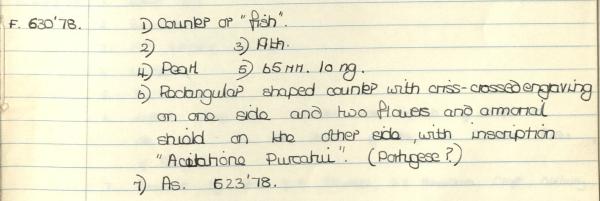 F. 630'78. 1) Counter or "fish".
2) 3) Ath.
4) Pearl 5) 65mm. long.
6) Rectangular shaped counter with criss-crossed engraving
on one side and two flowers and armorial
shield on the other side, with inscription
(Portugese?)
7) As. 623'78.